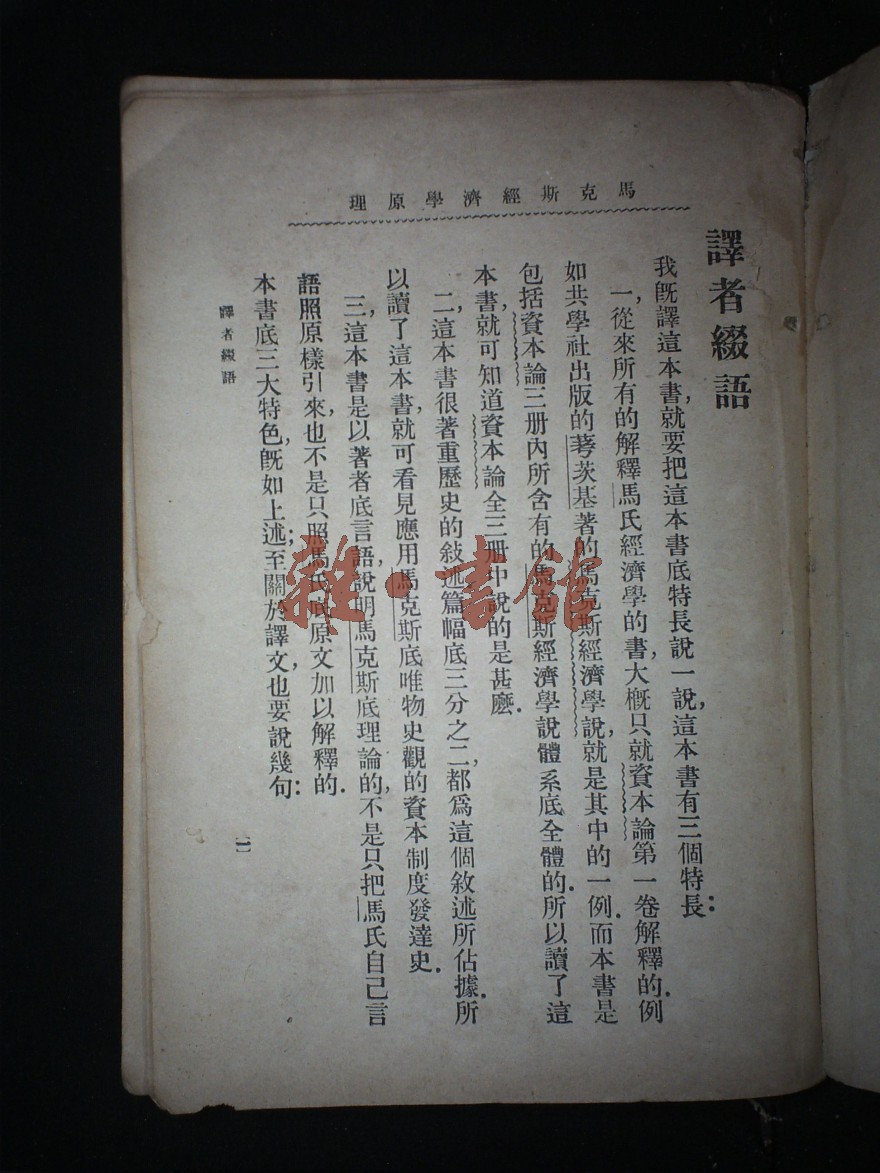 馬克斯經濟學原理
譯者綴語
我旣譯這本書,就要把這本書底特長說一說,這本書有三個特長:
一,從來所有的解釋馬氏經濟學的書,大槪只就資本論第一卷解釋的.例
如共學社出版的茇基著的馬克斯經濟學說,就是其中的一例.而本書是
包括資本論三册內所含有的馬克斯經濟學說體系底全體的.所以讀了這
本書,就可知道資本論全三册中說的是甚麼.
二,這本書很著重歷史的敍述,篇幅底三分之二,都爲這個敘述所佔據.所
以讀了這本書,就可看見應用馬克斯底唯物史觀的資本制度發達史.
三,這本書是以著者底言語,說明馬克斯底理論的,不是只把馬氏自己言
語照原樣引來,也不是只照馬氏底原文加以解釋的.
本書底三大特色,旣如上述;至關於譯文,也要說幾句:
譯者綴語
一
雜·書館